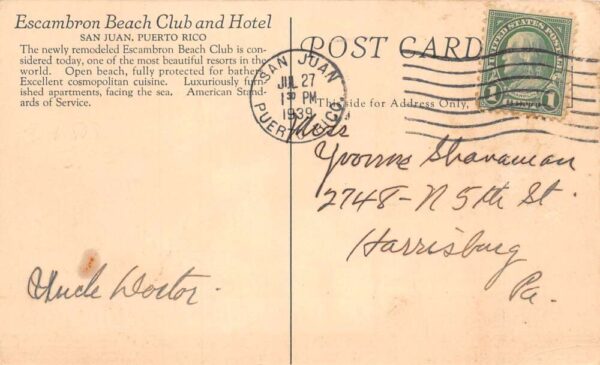 Escambron Beach Club and Hotel
SAN JUAN, PUERTO RICO
The newly remodeled Escambron Beach Club is con-
sidered today, one of the most beautiful resorts in the
world. Open beach, fully protected for bathers
Excellent cosmopolitan cuisine. Luxuriously furn-
ished apartments, facing the sea. American Stand-
ards of Service.
Uncle Doctor.
POST CARD
This side for Address Only.
SAN JUAN
JUL 27
1 30 PM
1939
PUERTO RICO
UNITED STATES POSTAGE
1 1
Miss
Yvonne Shanaman
2748- N 5th St.
Harrisburg
Pa.